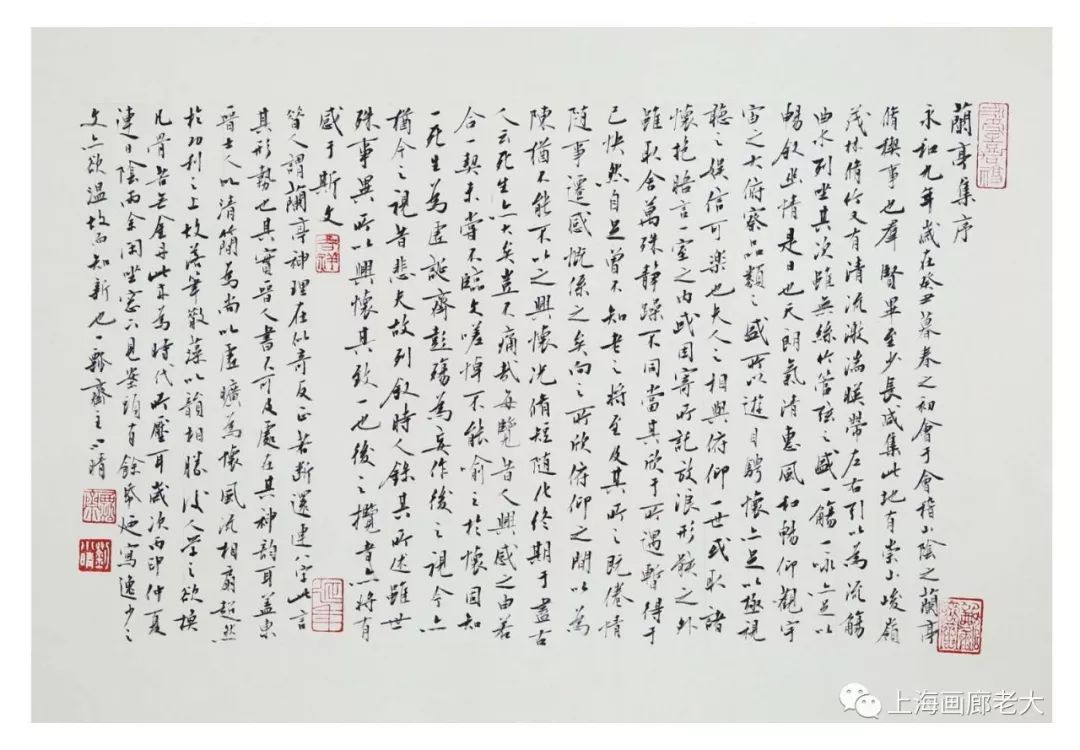 蘭亭集序
永和九年歲在癸丑暮春之初會于會稽山陰之蘭亭
脩稧事也羣賢畢至少長咸集此地有崇山峻嶺
茂林脩竹又有清流激湍暎帶左右引以為流觴
曲水列坐其次雖無絲竹管弦之盛一觴一詠亦足以
暢叙幽情是日也天朗氣清惠風和暢仰觀宇
宙之大俯察品類之盛所以遊目騁懷亦足以極視
聽之娛信可樂也夫人之相與俯仰一世或取諸
懷抱晤言一室之內或因寄所託放浪形骸之外
雖取舍萬殊靜躁不同當其欣于所遇暫得于
己快然自足曾不知老之將至及其所之既倦情
隨事遷感慨係之矣向之所欣俯仰之間以為
陳猶不能不以之興懷況脩短隨化終期于盡古
人云死生亦大矣豈不痛哉每覽昔人興感之由若
合一契未嘗不臨文嗟悼不能喻之於懷固知
一死生為虛誕齊彭殤為妄作後之視今亦
猶今之視昔悲夫故列叙時人錄其所述雖世
殊事異所以興懷其致一也後之攬者亦將有
感于斯文
吉祥
昔人謂蘭亭神理在似奇反正若斷還連八字此言
其形勢也其實晉人書不可及處在其神韵耳蓋東
晉士人以清簡為尚以虛曠為懷風流相扇超然
於功利之上故落筆散藻以韻相勝後人學之欲換
凡骨苦無金丹此亦為時代所壓耳歲次丙仲夏
連日陰雨余閑坐窗下見案頭有餘紙寫逸少之
文亦欲溫故而知新也一瓢齋主小晴
上海画廊老大